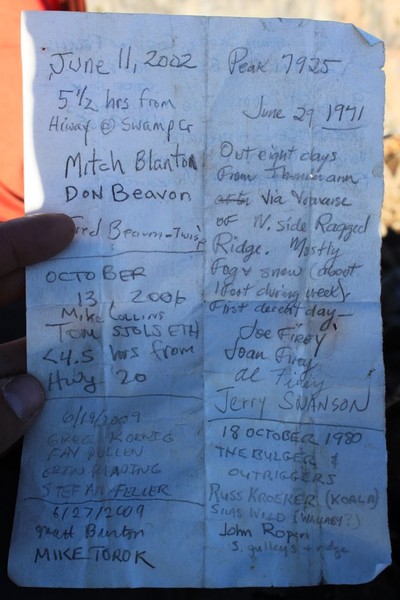 June 11, 2002
5 1/2 hrs from
Hiway @ Swamp Cr
Mitch Blanton
Don Beavon
Fred Beavon-
OCTOBER
13 2006
Mike Collins
Tom SJOLSETH
<4.5 hrs from
Hwy 20
6/19/2009
GREG KOENIG
FAY PULLEN
STEFAN FELLER
6/27/2009
Matt Burton
MIKE TOROK
Peak 7925
June 29 1971
Out eight days
from
Via Traverse
of N. side Ragged
Ridge. Mostly
Fog & snow (about
1 foot during week).
First decent day—
Joe Firey
Joan Firey
Al Firey
Jerry SWANSON
18 OCTOBER 1980
THE BULGER &
OUTRIGGERS
RUSS KROEKER (KOALA)
SILAS WILD (
John Roper
S. gulleys + ridge